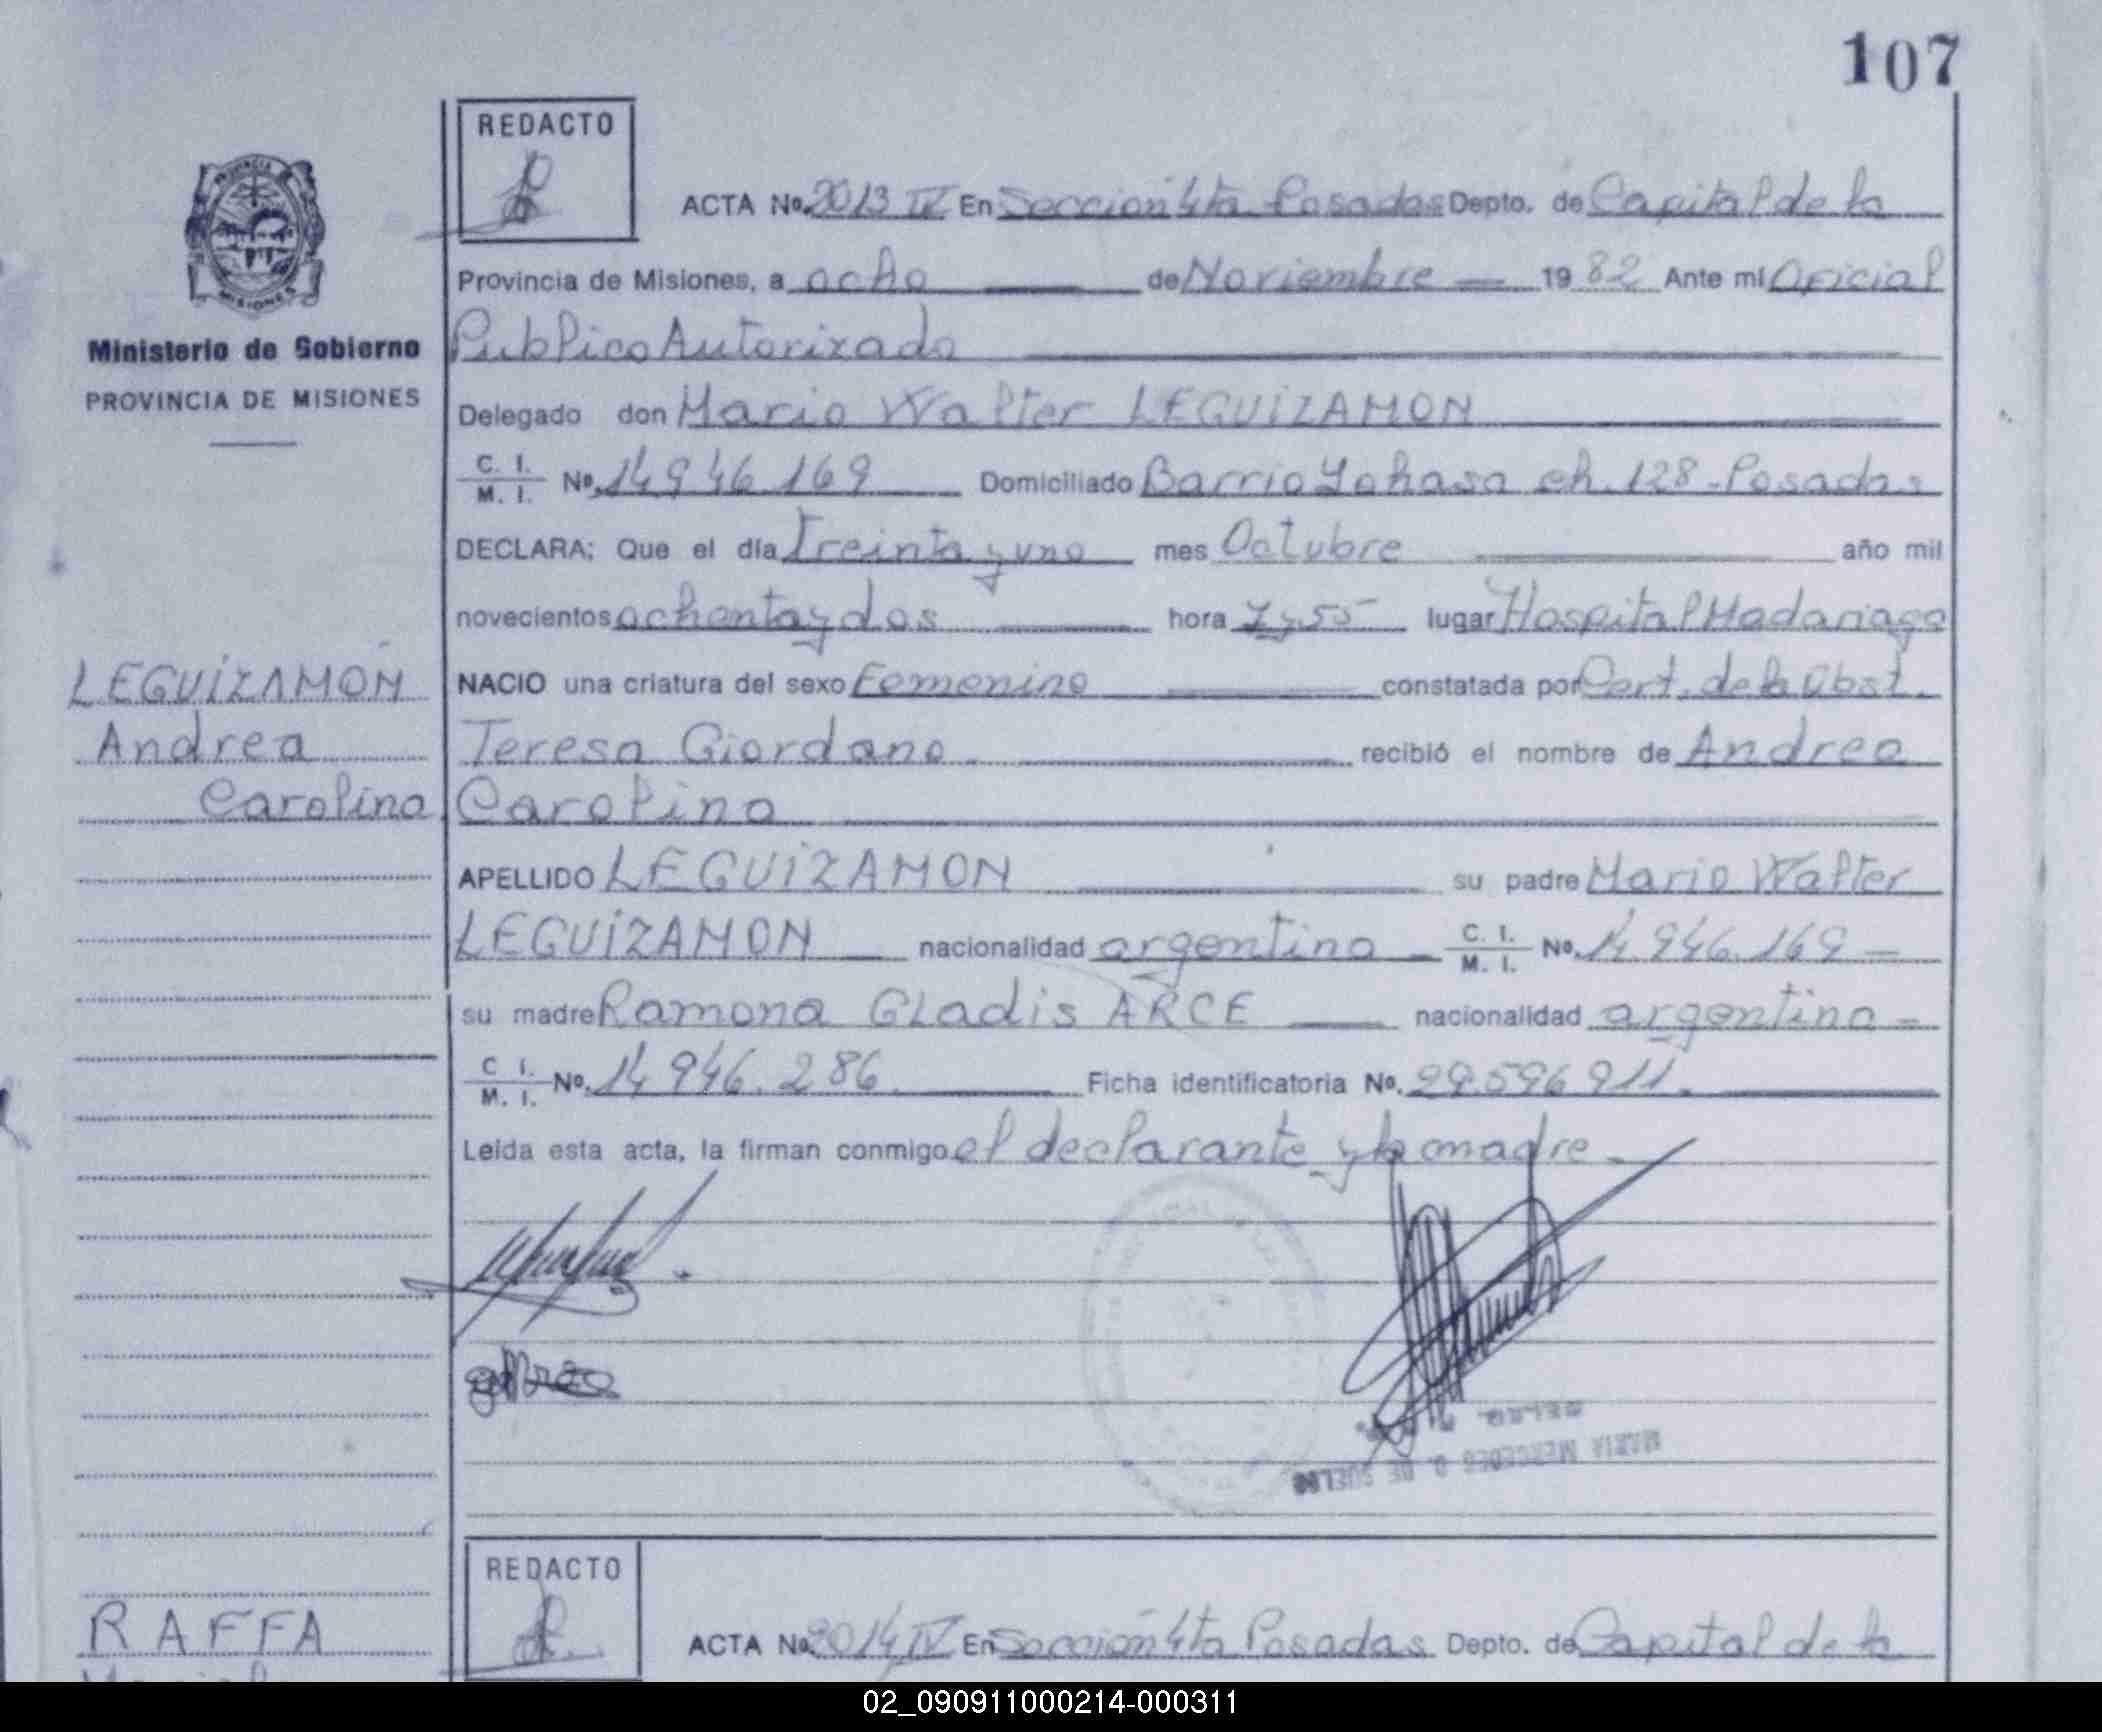 107
REDACTO
ACTA No. 2013 IV En Sección 4ta Posadas Depto. de Capital de la
Provincia de Misiones, a ocho de Noviembre 1982 Ante mi Oficial
Publico Autorizado
Ministerio de Gobierno
PROVINCIA DE MISIONES
Delegado don Mario Walter LEGUIZAMON
C. I. / M. I. No. 14.946.169 Domiciliado Barrio Yohasa ch. 128 - Posadas
DECLARA; Que el día Treinta y uno mes Octubre año mil
novecientos ochenta y dos hora 7 y 55 lugar Hospital Madariaga
NACIO una criatura del sexo Femenino constatada por Cert. de la Obst.
Teresa Giordano recibió el nombre de Andrea
Carolina
LEGUIZAMON
Andrea
Carolina
APELLIDO LEGUIZAMON su padre Mario Walter
LEGUIZAMON nacionalidad argentina C. I. / M. I. No. 14.946.169
su madre Ramona Gladis ARCE nacionalidad argentina
C I. / M. I. No. 14.946.286 Ficha identificatoria No. 29.596.911.
Leida esta acta, la firman conmigo el declarante y la madre.
MARIA MERCEDES D. DE SUELDO
REDACTO
ACTA No. 2014 IV En Sección 4ta Posadas Depto. de Capital de la
RAFFA
02_090911000214-000311